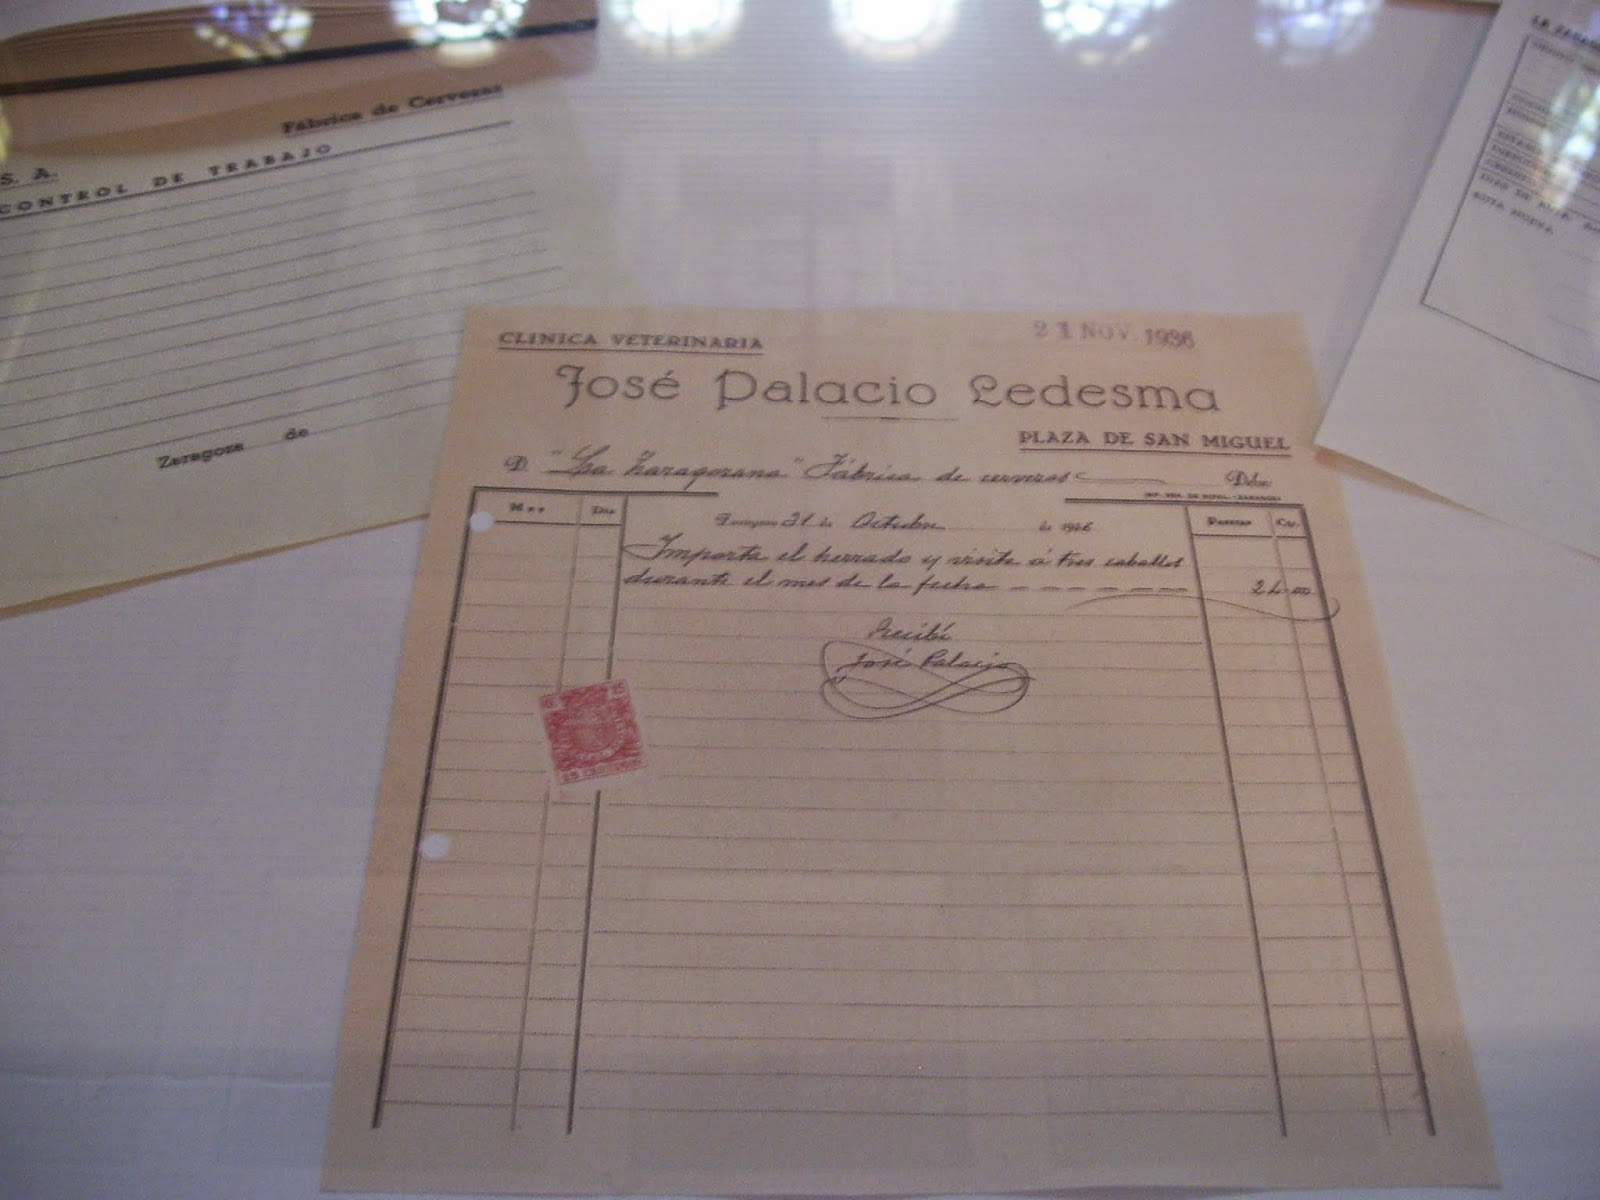 Fábrica de Cervezas
S. A.
CONTROL DE TRABAJO
Zaragoza de
CLINICA VETERINARIA
21 NOV. 1936
José Palacio Ledesma
PLAZA DE SAN MIGUEL
D. "La Zaragozana" Fábrica de cervezas Debe:
Mes Día Pesetas Cts.
Zaragoza 31 de Octubre de 1936
Importa el herrado y visita á tres caballos
durante el mes de la fecha
Recibí
José Palacio
15
NOTA BUENA